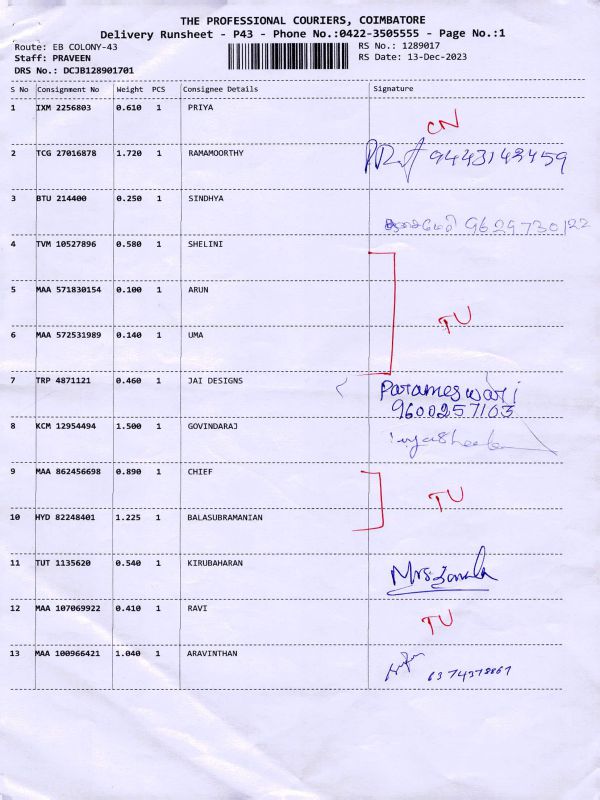 THE PROFESSIONAL COURIERS, COIMBATORE
Delivery Runsheet - P43 - Phone No.:0422-3505555 - Page No.:1
Route: EB COLONY-43
RS No.: 1289017
Staff: PRAVEEN
RS Date: 13-Dec-2023
DRS No.: DCJB128901701
S No Consignment No Weight PCS Consignee Details Signature
1 IXM 2256803 0.610 1 PRIYA
CN
2 TCG 27016878 1.720 1 RAMAMOORTHY
9443143459
3 BTU 214400 0.250 1 SINDHYA
9629730122
4 TVM 10527896 0.580 1 SHELINI
5 MAA 571830154 0.100 1 ARUN
TU
6 MAA 572531989 0.140 1 UMA
7 TRP 4871121 0.460 1 JAI DESIGNS
Parameswari
9600257103
8 KCM 12954494 1.500 1 GOVINDARAJ
9 MAA 862456698 0.890 1 CHIEF
TU
10 HYD 82248401 1.225 1 BALASUBRAMANIAN
11 TUT 1135620 0.540 1 KIRUBAHARAN
Mrs.
12 MAA 107069922 0.410 1 RAVI
TU
13 MAA 100966421 1.040 1 ARAVINTHAN
6374378867